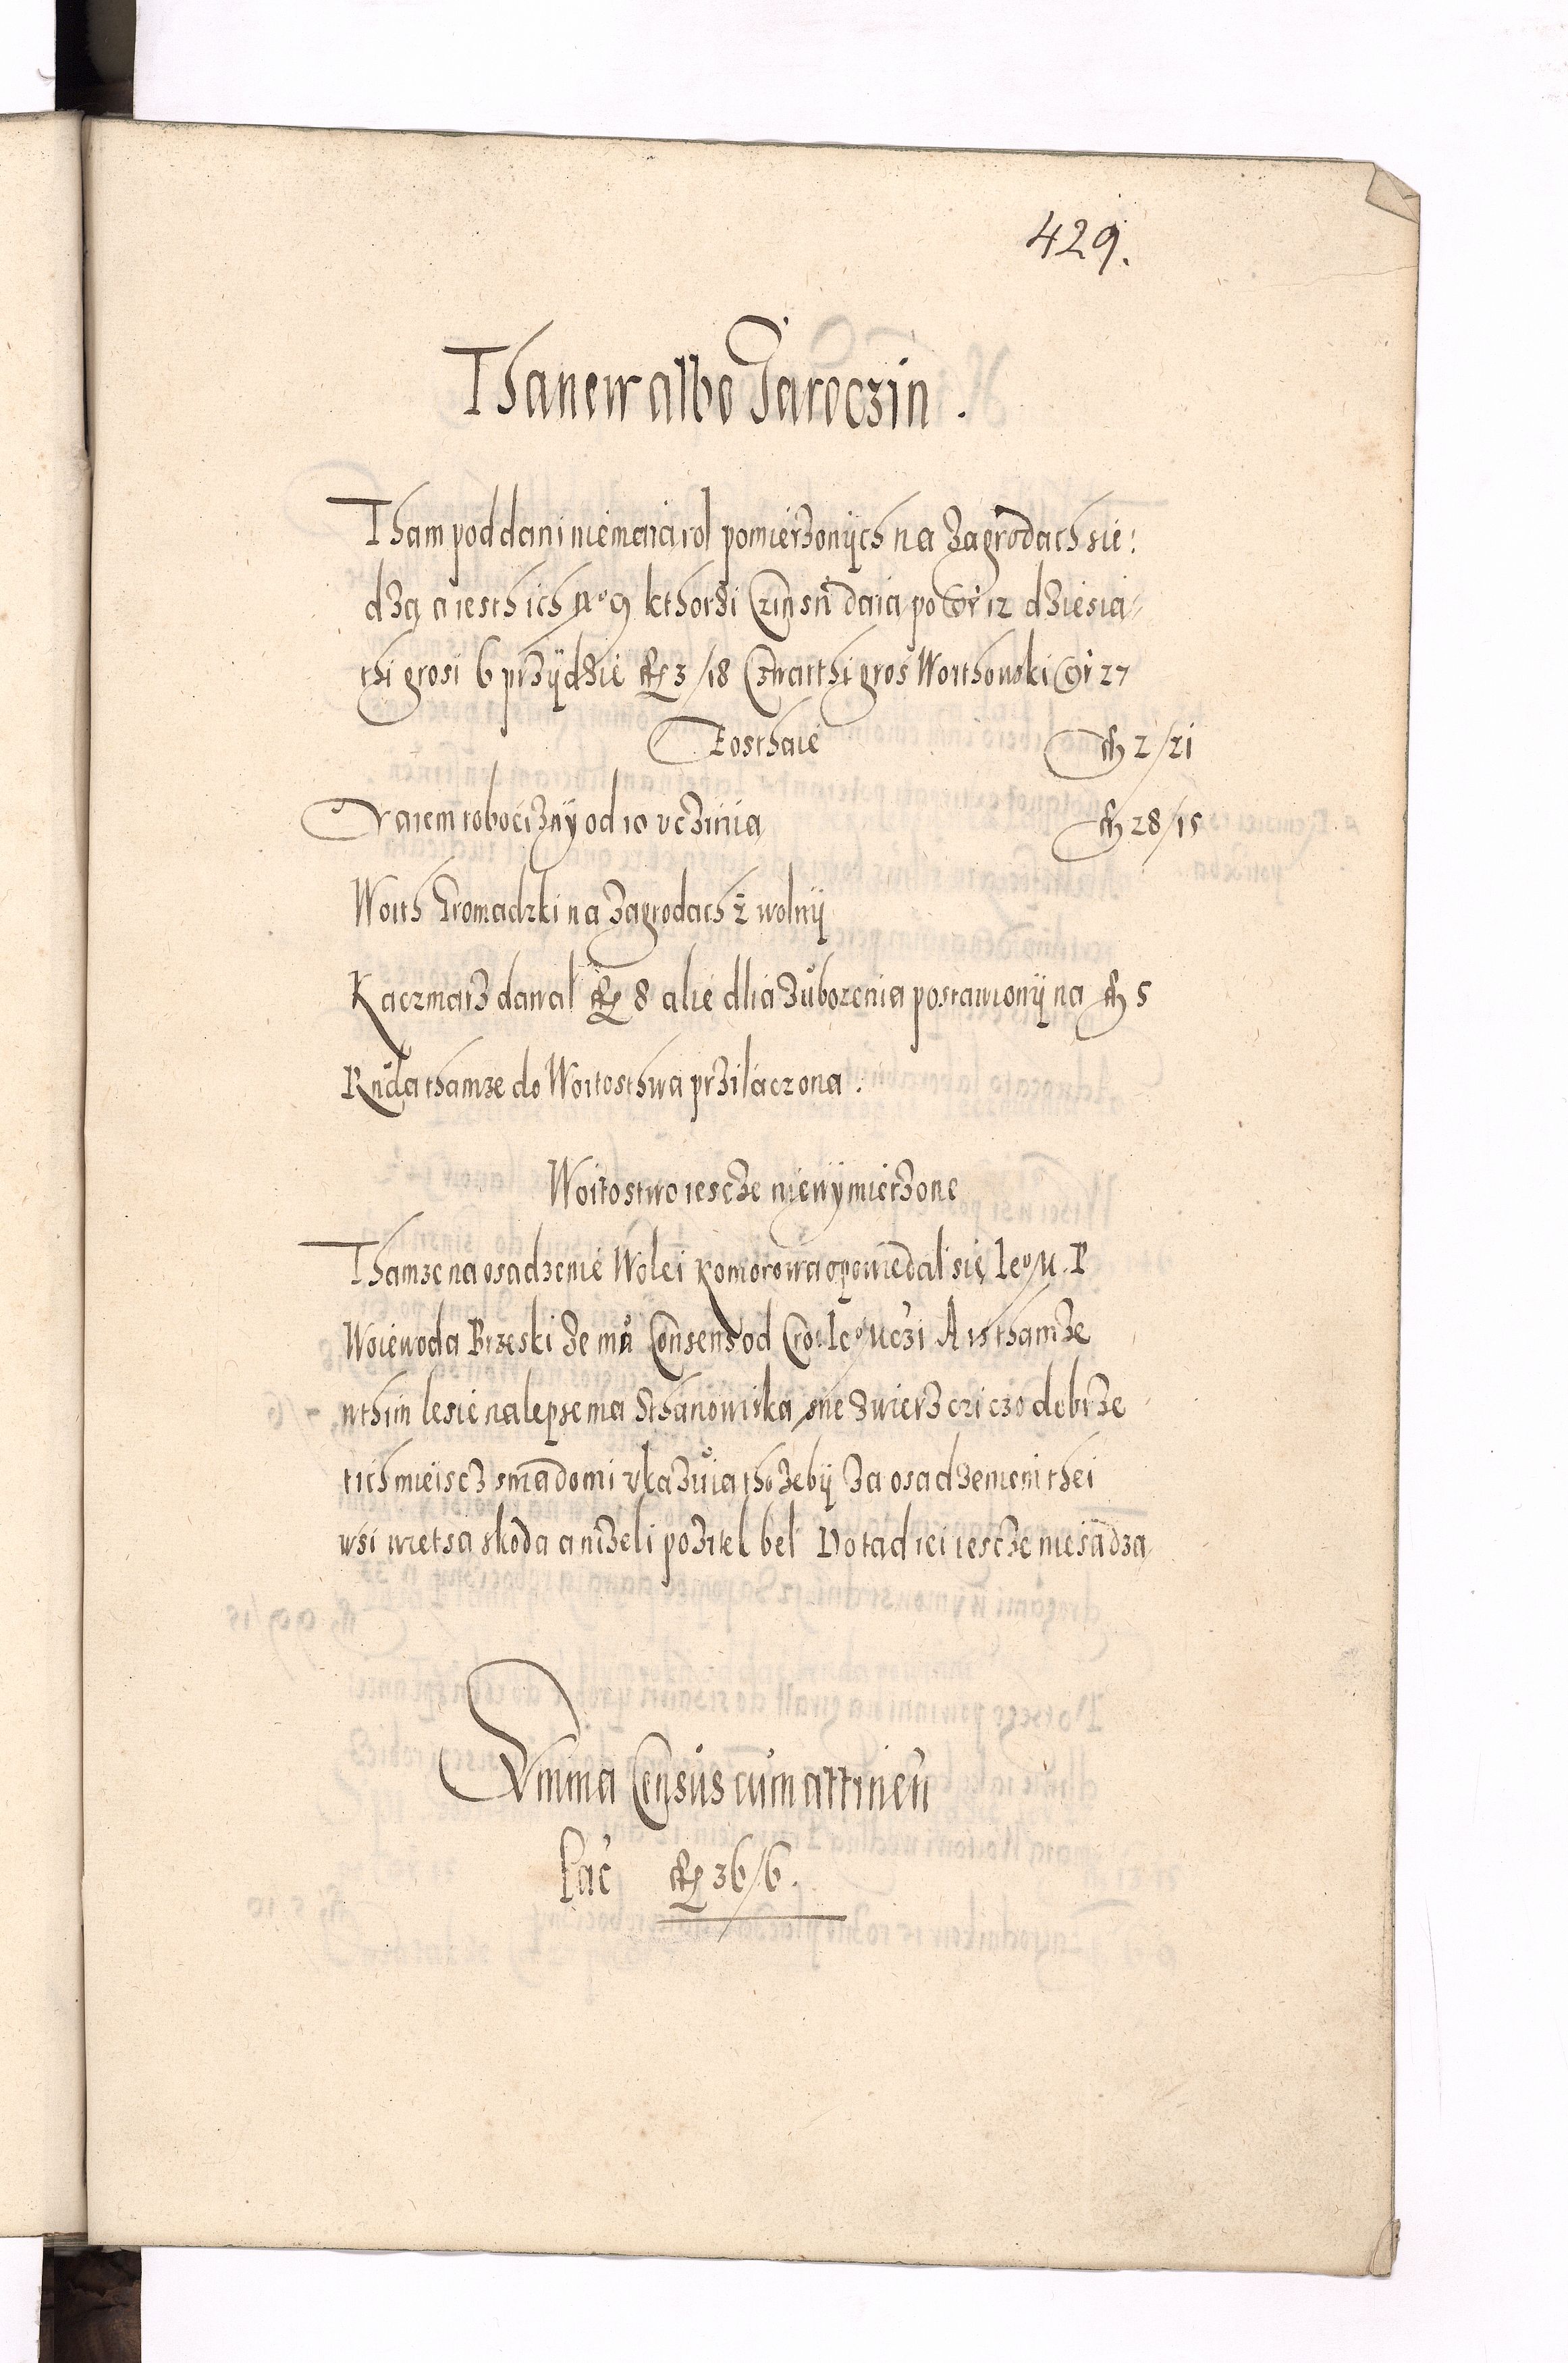 429.
Thanew albo Jaroczin.
Tham poddani niemaia rol pomierzonÿch na Zagrodach sie:
dzą a iesth ich nº 9 kthorzi Czinsu daia po gr 12 dziesia-
thi grosi 6 przÿdzie fl 3/18 Czwarthi gros Woithowski gr 27
Zosthaie fl 2/21
Naiem robociznÿ od 10 vczinia fl 28/15
Woith Gromadzki na Zagrodach 2 wolnÿ
Kaczmarz dawal fl 8 alie dlia zubozenia postawionÿ na fl 5
Ruda thamze do Woitosthwa przilaczona.
Woitostwo iescze niewÿmierzone
Thamze na osadzenie Wolei Komorowa opowiedal się Ieº M. P
Woiewoda Brzeski ze mu Consens od Cro: Ieº Mczi A is thamze
wthim lesie nalepse ma Sthanowiska zwierz czo dobrze
tich mieiscz smadomi vkazuia tho zebÿ za osadzeniem thei
wsi wietsa skoda anizeli pozitek bel Dotad iei iescze niesadza
Summa Census cum attinen
fac fl 36/6.